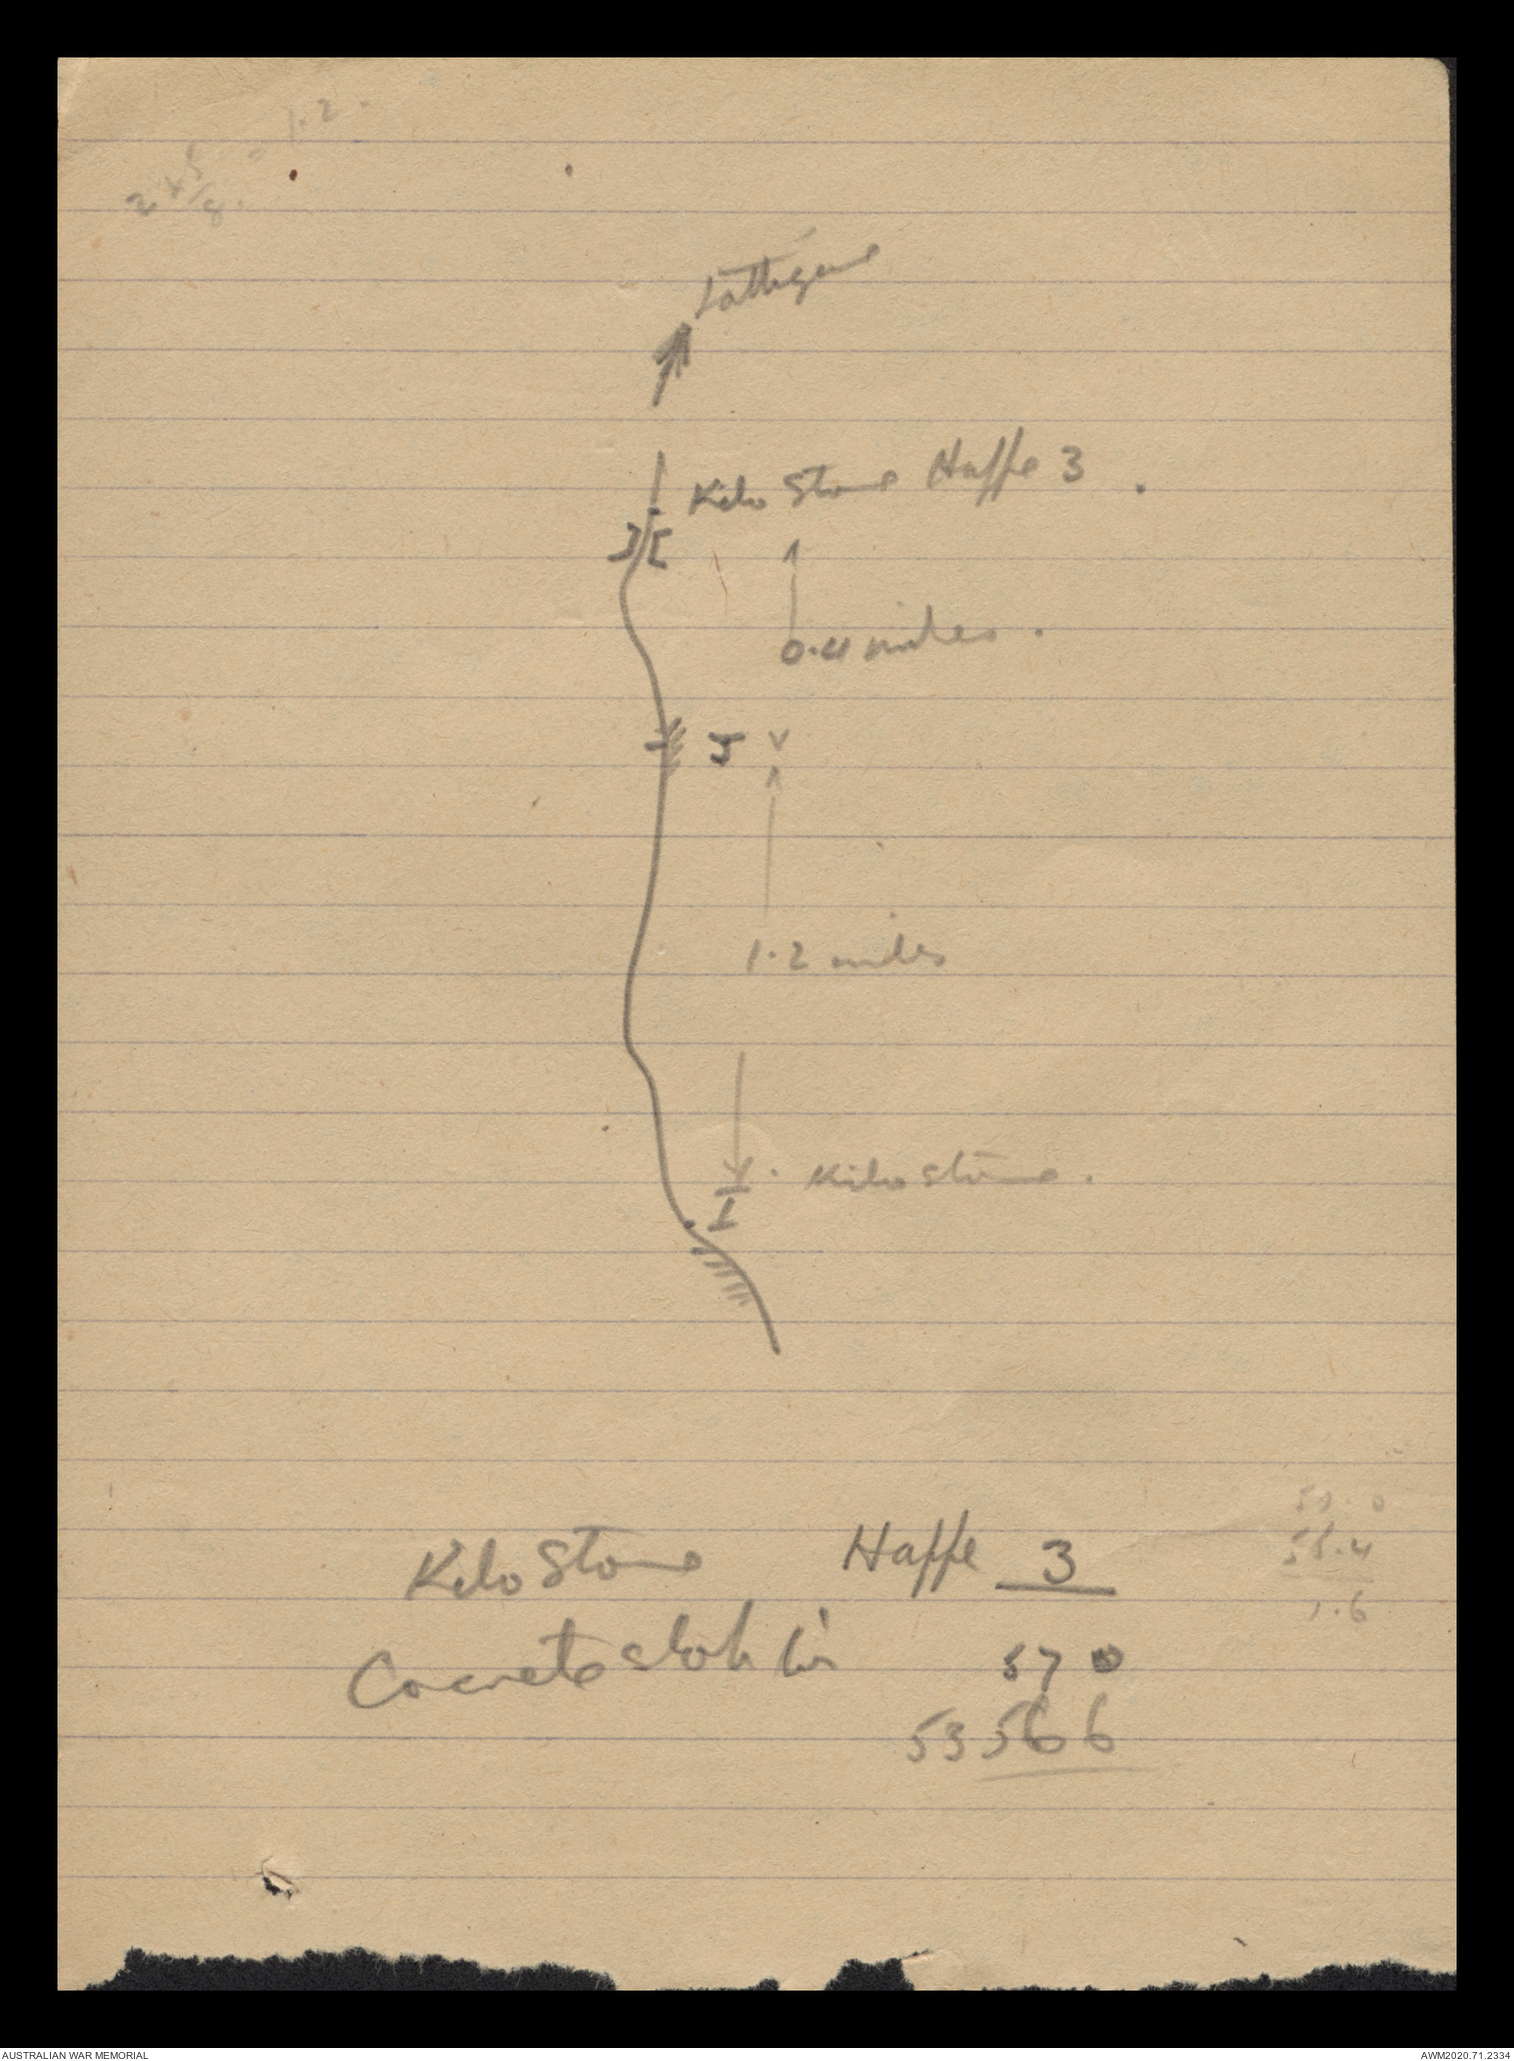 1.2
2 x 5/8 =
Kilo Stone Haffe 3.
0.4 miles.
J
1.2 miles
Kilo stone.
I
57.0
55.4
1.6
Kilo Stone Haffe 3
570
53566
AUSTRALIAN WAR MEMORIAL
AWM2020.71.2334